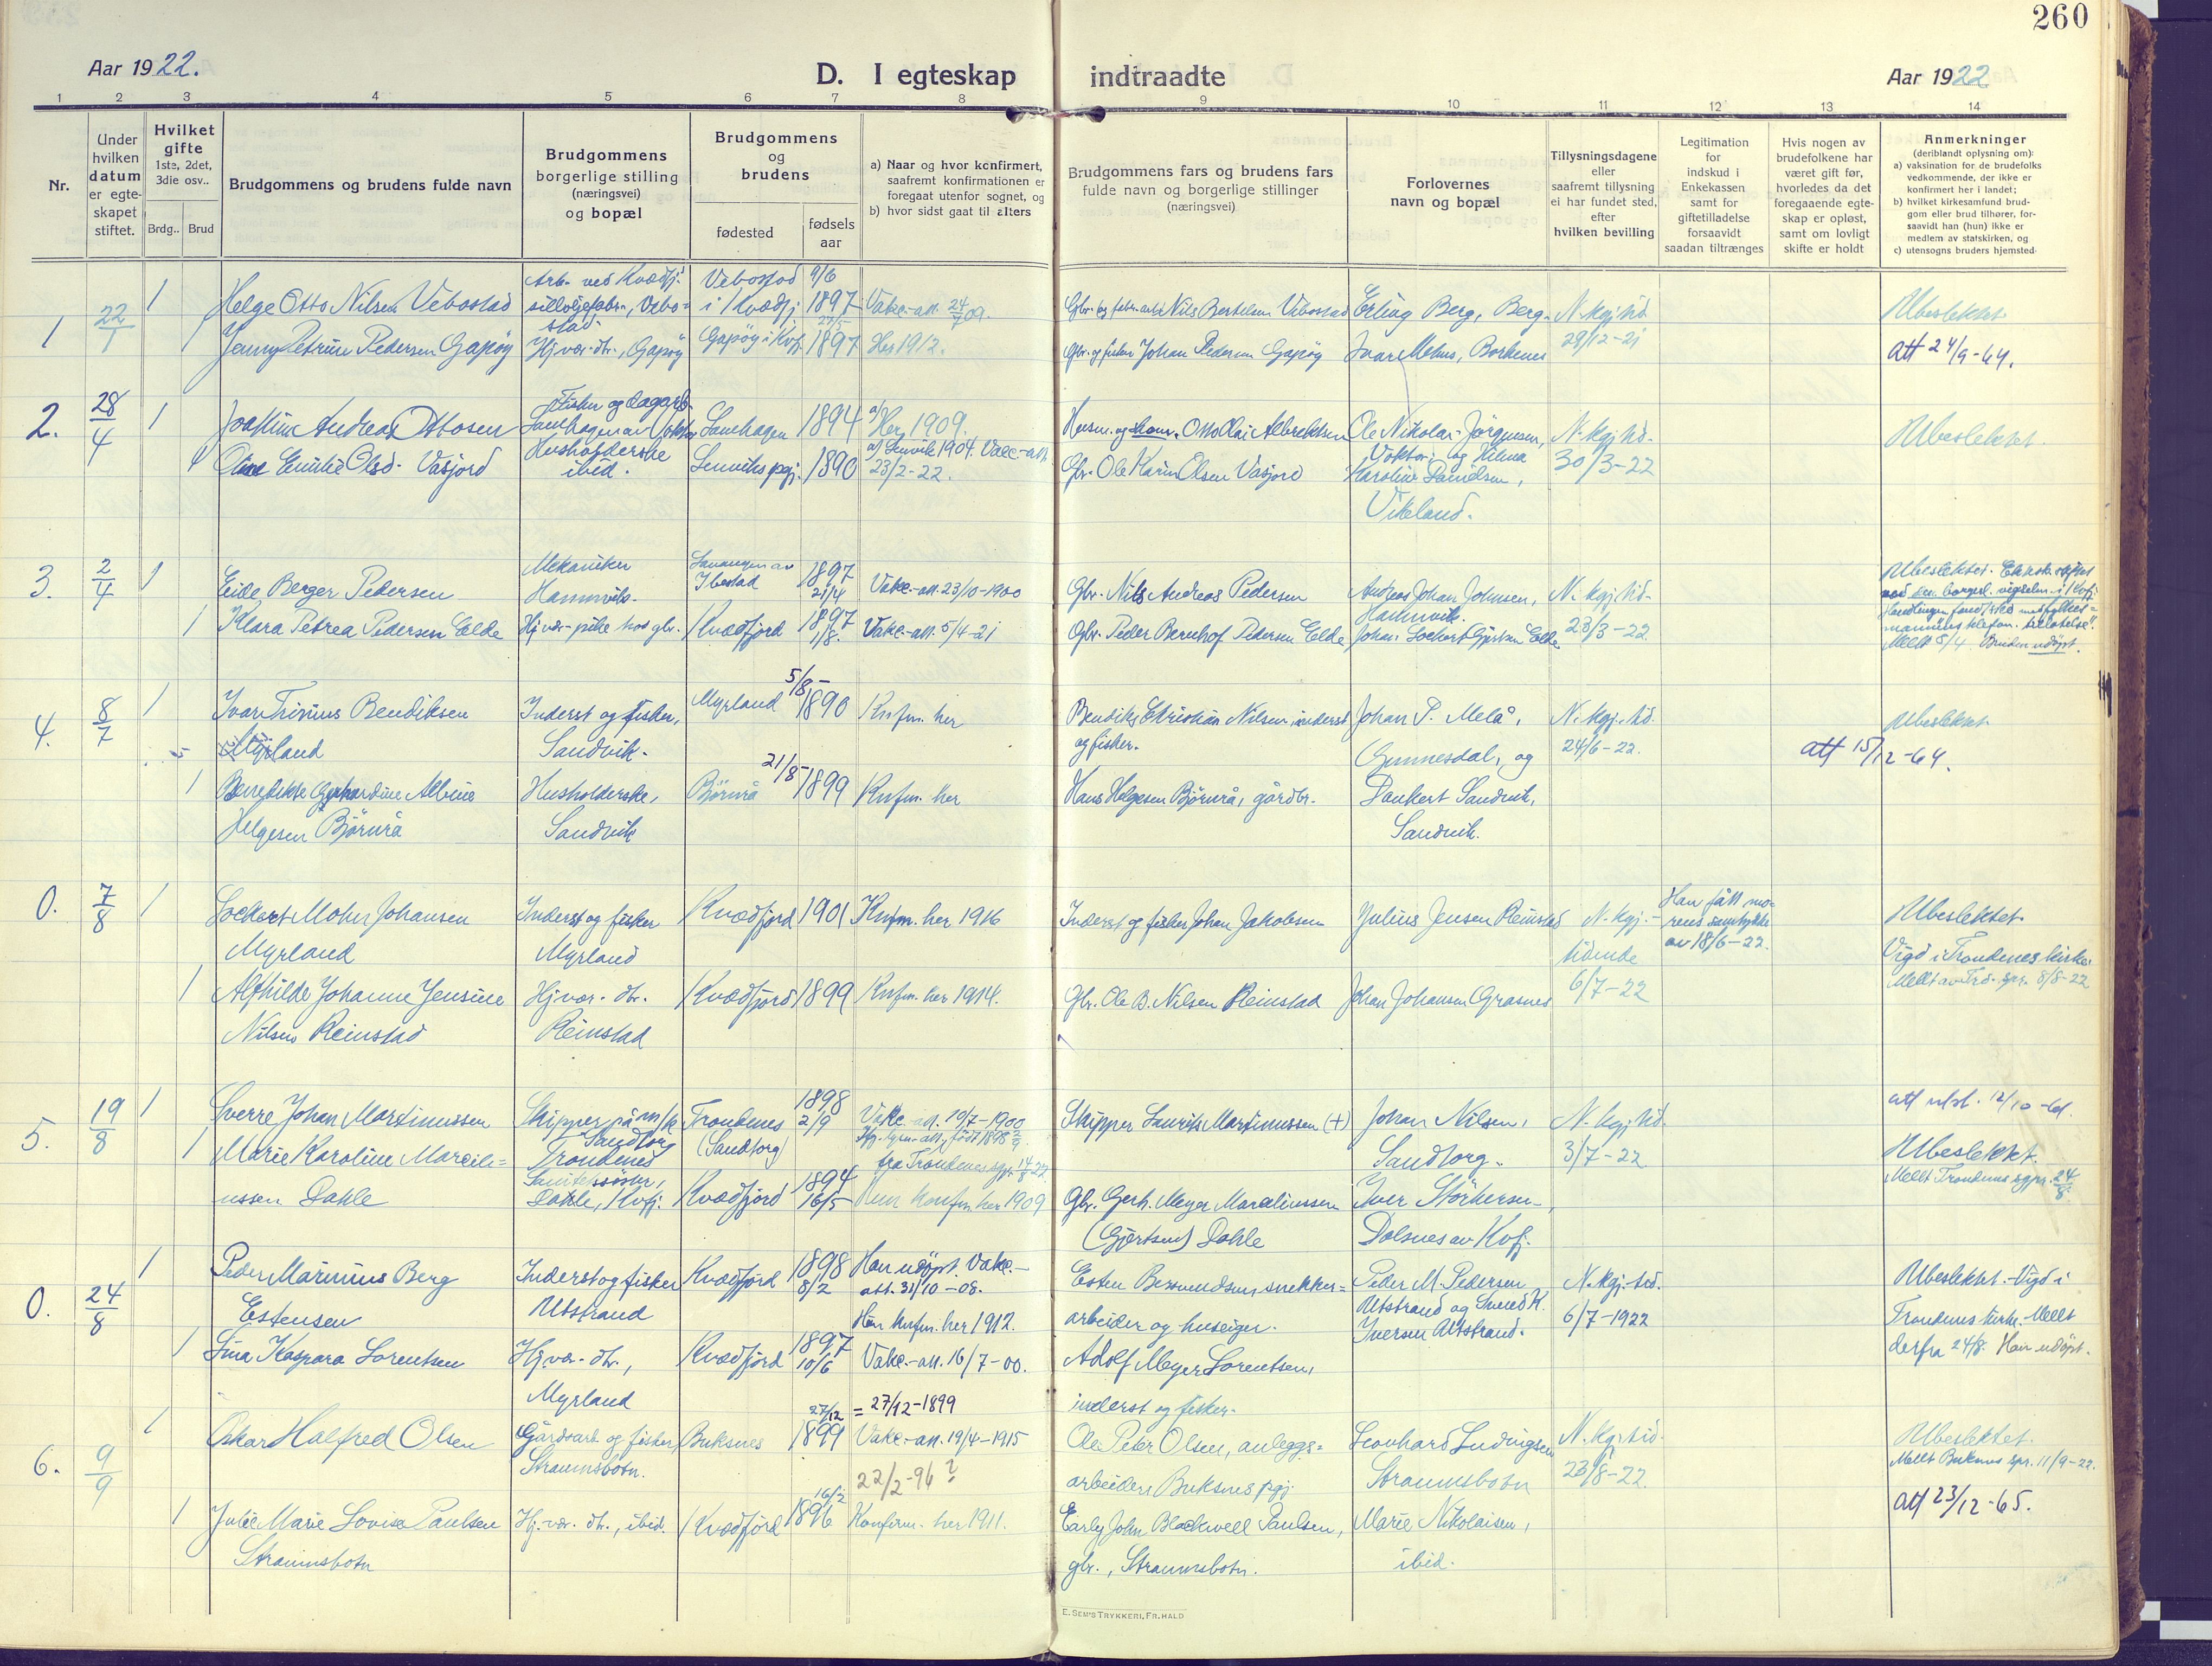 260
Aar 1922.
D. I egteskap indtraadte
Aar 1922
1 2 3 4 5 6 7 8 9 10 11 12 13 14
Nr.
Under hvilken datum er egteskapet stiftet.
Hvilket gifte 1ste, 2det, 3die osv..
Brdg..
Brud
Brudgommens og brudens fulde navn
Brudgommens borgerlige stilling (næringsvei) og bopæl
Brudgommens og brudens
fødested
fødsels aar
a) Naar og hvor konfirmert, saafremt konfirmationen er foregaat utenfor sognet, og
b) hvor sidst gaat til alters
Brudgommens fars og brudens fars fulde navn og borgerlige stillinger (næringsvei)
Forlovernes navn og bopæl
Tillysningsdagene eller saafremt tillysning ei har fundet sted, efter hvilken bevilling
Legitimation for indskud i Enkekassen samt for giftetilladelse forsaavidt saadan tiltrænges
Hvis nogen av brudefolkene har været gift før, hvorledes da det foregaaende egteskap er opløst, samt om lovligt skifte er holdt
Anmerkninger
(deriblandt oplysning om):
a) vaksination for de brudefolks vedkommende, der ikke er konfirmert her i landet;
b) hvilket kirkesamfund brudgom eller brud tilhører, forsaavidt han (hun) ikke er medlem av statskirken, og
c) utensogns bruders hjemsted.
1
22/1
1
Helge Otto Nilsen Vebostad
Arb. ved Kvædfj. sildoljefabr., Vebostad
Vebostad i Kvædfj.
9/6 1897
Vakc.-att. 24/7 09.
Nils Bertelsen Vebostad
Erling Berg, Berg.
N. kgj. tid
29/12-21
Ubeslektet
1
Jenny Petrine Pedersen Gapøy
Hj.vær. dtr., Gapøy
Gapøy i Kvfj.
1897
Her 1912.
Gbr. og fisker Johan Pedersen Gapøy
Ivar Mehus, Borkenes
att 24/9-64.
2.
28/4
1
Joakim Andreas Ottosen
Fisker og dagarb.
Lanehagen
1894
a) Her 1909.
Husm. og Otto Olai Albrektsen
Ole Nikolai Jörgensen,
N. kgj. tid.
30/3-22
Ubeslektet.
1
Oline Emilie Olsd. Vasjord
Husholderske ibid.
Lenviks pgj.
1890
a) Lenvik 1904. Vacc.-att. 23/2-22.
Gbr. Ole Karin Olsen Vasjord
og Hilma Karoline Danielsen, Vikeland.
3.
2/4
1
Eide Berger Pedersen
Mekaniker
Hamnvik.
Ibestad
1897 21/4
Vakc.-att. 23/10-1900
Gbr. Nils Andreas Pedersen
Andreas Johan Johnsen, Hamnvik.
N. kgj. tid.
23/3-22
Ubeslektet.
borgerl. vigselen i Kvfj.
Meldt 5/4. Bruden udøpt.
1
Klara Petrea Pedersen Elde
Hj.vær. pike hos gbr.
Kvædfjord
1897 1/8.
Vakc.-att. 5/4-21
Gbr. Peder Bernhof Pedersen Elde
Johan Lockert Gjertsen Elde
4.
8/7
1
Ivar Trinius Bendiksen
Myrland
Inderst og fisker,
Sandvik.
Myrland
5/8- 1890
Knfm. her
Bendik Kristian Nilsen, inderst
og fisker.
Johan P. Melå,
Gunnesdal, og
N. kgj. tid.
24/6-22.
Ubeslektet
att 15/12-64.
1
Benedikte Gerhardine Albine
Helgesen Björnrå
Husholderske,
Sandvik
Björnrå
21/8- 1899
Knfm. her
Hans Helgesen Björnrå, gårdbr.
Dankert Sandvik,
Sandvik.
0.
7/8
1
Lockert Mohn Johansen
Myrland
Inderst og fisker
Myrland
Kvædfjord
1901
Knfm. her 1916
Inderst og fisker Johan Jakobsen
Julius Jensen Reinstad
N. kgj.-
tidende
6/7-22
Han fått morens samtykke av 18/6-22.
Ubeslektet.
Vigd i Trondenes kirke.
Meldt av Trd. spr. 8/8-22
1
Alfhilde Johanne Jensine
Nilsen Reinstad
Hj.vær. dtr.
Reinstad
Kvædfjord
1899
Knfm. her 1914.
Gbr. Ole B. Nilsen Reinstad
Johan Johansen Grasnes
5.
19/8
1
Sverre Johan Martinussen
Skipper på m/k
Sandtorg
Trondenes
Trondenes
(Sandtorg)
1898 2/9
Vakc.-att. 19/7-1900
fra Trondenes sgpr. 14/8 22
Skipper Laurits Martinussen (+)
Johan Nilsen,
Sandtorg.
N. kgj. tid.
3/7-22
att utst. 12/10-61.
Ubeslektet.
Meldt Trondenes sgpr. 24/8
1
Marie Karoline Marcili=
ussen Dahle
Dahle, Kvfj.
Kvædfjord
1894 16/5
Hun konfm. her 1909
Gbr. Gerh. Meyer Marciliussen
(Gjertsen) Dahle
Iver Störkersen,
Dalsnes av Kvfj.
0.
24/8
1
Peder Marinius Berg
Estensen
Inderst og fisker
Utstrand
Kvædfjord
1898 8/2
Han udøpt. Vakc.-
att. 31/10-08.
Han knfm. her 1912.
Esten Bersvendsen, snekker=
arbeider og huseiger.
Peder M. Pedersen
Utstrand og Svend K.
Iversen Utstrand.
N. kgj. tid.
6/7-1922
Ubeslektet. Vigd i
Trondenes kirke. Meldt
derfra 24/8. Han udöpt.
1
Lina Kaspara Lorentsen
Hj.vær. dtr.,
Myrland
Kvædfjord
1897 10/6
Vakc.-att. 16/7-00.
Adolf Meyer Lorentsen,
inderst og fisker.
6.
9/9
1
Oskar Halfred Olsen
Gårdsarb. og fisker,
Straumsbotn.
Buksnes
27/12 1899
= 27/12-1899
Vakc.-att. 19/4-1915
Ole Peter Olsen, anleggs=
arbeider, Buksnes pgj.
Leonhard Ludvigsen
Straumsbotn
N. kgj. tid.
23/8-22.
Ubeslektet.
Meldt Buksnes spr. 11/9-22.
att 23/12-65.
1
Julie Marie Lovise Paulsen
Straumsbotn
Hj. vær. dtr., ibid.
Kvædfjord
16/2 1896
22/2-96?
Konfirm. her 1911.
Early John Blackwell Paulsen,
gbr., Straumsbotn.
Marie Nikolaisen,
ibid.
E. SEM'S TRYKKERI, FR.HALD